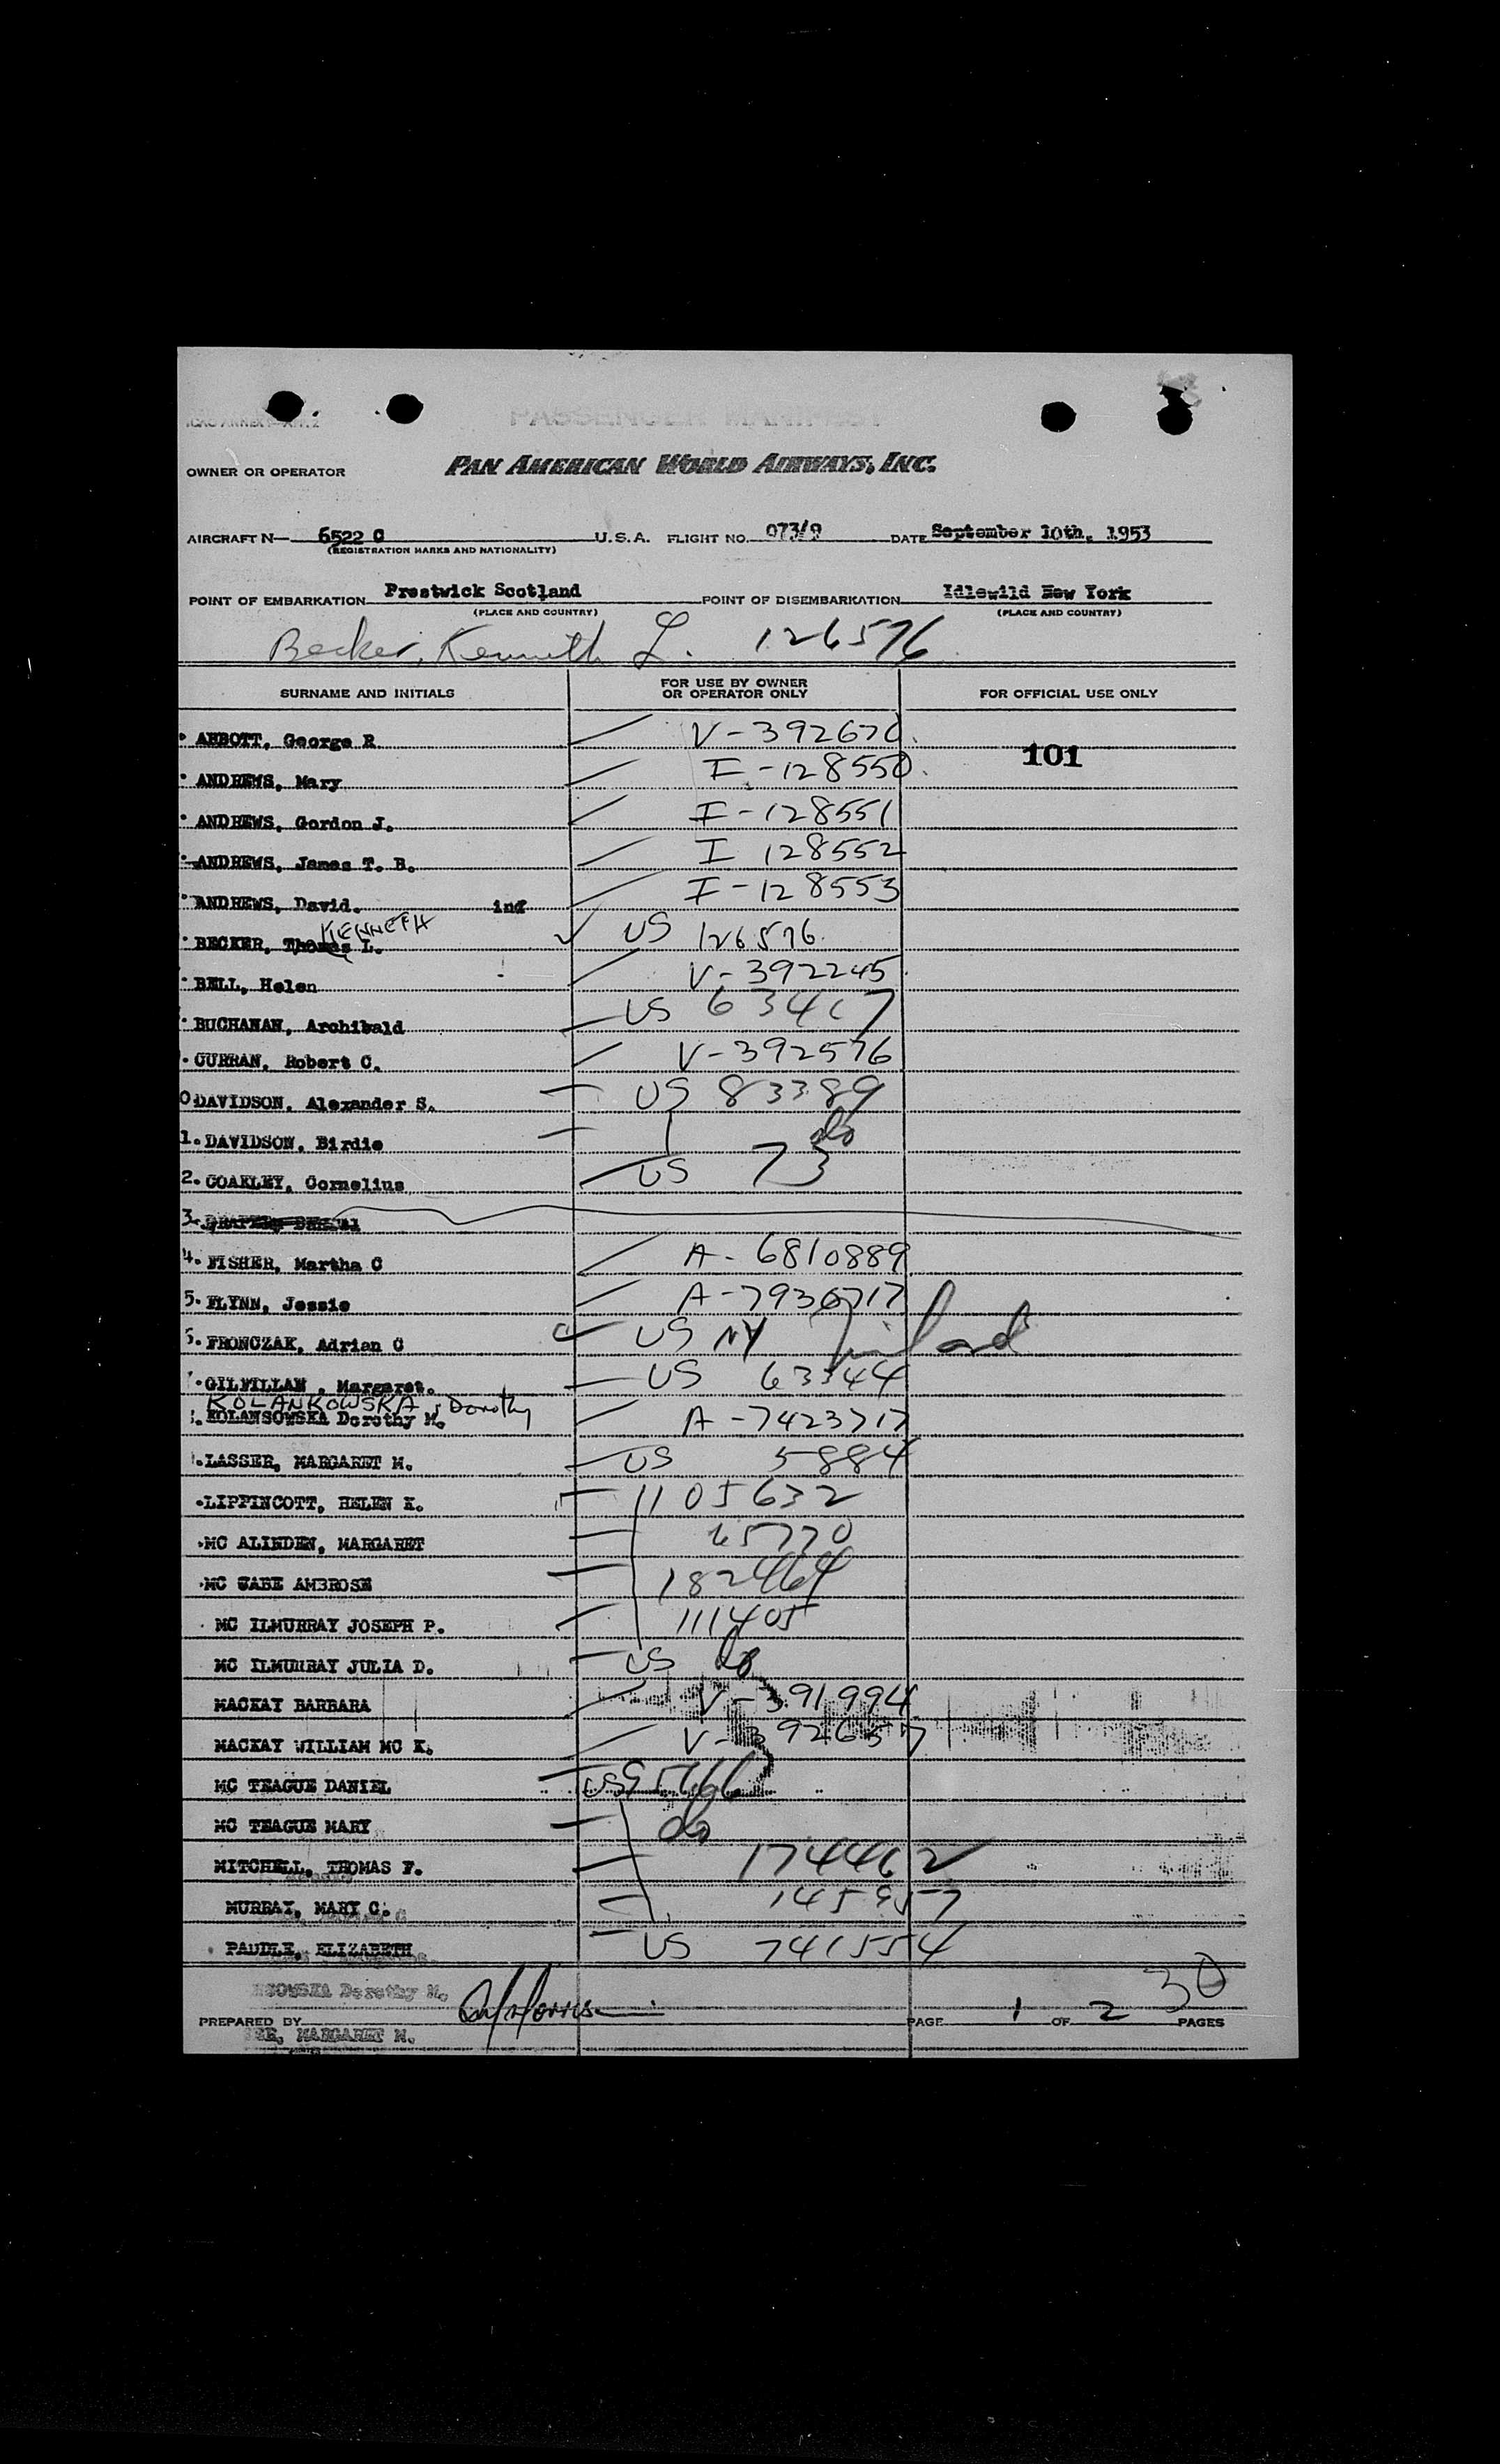 PASSENGER MANIFEST
OWNER OR OPERATOR PAN AMERICAN WORLD AIRWAYS, INC.
AIRCRAFT N— 6522 C U.S.A. FLIGHT NO. 073/9 DATE September 10th, 1953
(REGISTRATION MARKS AND NATIONALITY)
POINT OF EMBARKATION Prestwick Scotland POINT OF DISEMBARKATION Idlewild New York
(PLACE AND COUNTRY) (PLACE AND COUNTRY)
Becker, Kenneth L. 126576
SURNAME AND INITIALS FOR USE BY OWNER OR OPERATOR ONLY FOR OFFICIAL USE ONLY
ABBOTT, George R V-392670
101
ANDREWS, Mary I-128550
ANDREWS, Gordon J. I-128551
ANDREWS, James T. B. I 128552
ANDREWS, David. inf I-128553
KENNETH
BECKER, Thomas L. US 126576
BELL, Helen V-392245
BUCHANAN, Archibald US 63417
CURRAN, Robert C. V-392576
0 DAVIDSON, Alexander S. US 83389
1. DAVIDSON, Birdie do
2. COAKLEY, Cornelius US 73
3.
4. FISHER, Martha C A-6810889
5. FLYNN, Jessie A-7936717
FRONCZAK, Adrian C US NY
GILFILLAN, Margaret. US 63344
KOLANKOWSKA, Dorothy
KOLANSOWSKA Dorothy M. A-7423717
LASSER, MARGARET M. US 5884
LIPPINCOTT, HELEN K. 1105632
MC ALINDEN, MARGARET 65770
MC CABE AMBROSE 182464
MC ILMURRAY JOSEPH P. 111405
MC ILMURRAY JULIA D. US do
MACKAY BARBARA V-391994
MACKAY WILLIAM MC K. V-392657
MC TEAGUE DANIEL US
MC TEAGUE MARY do
MITCHELL, THOMAS F. 174462
MURRAY, MARY C. 145957
PADDLE, ELIZABETH US 741554
30
SOWSKA Dorothy M.
PREPARED BY PAGE 1 OF 2 PAGES
SER, MARGARET M.